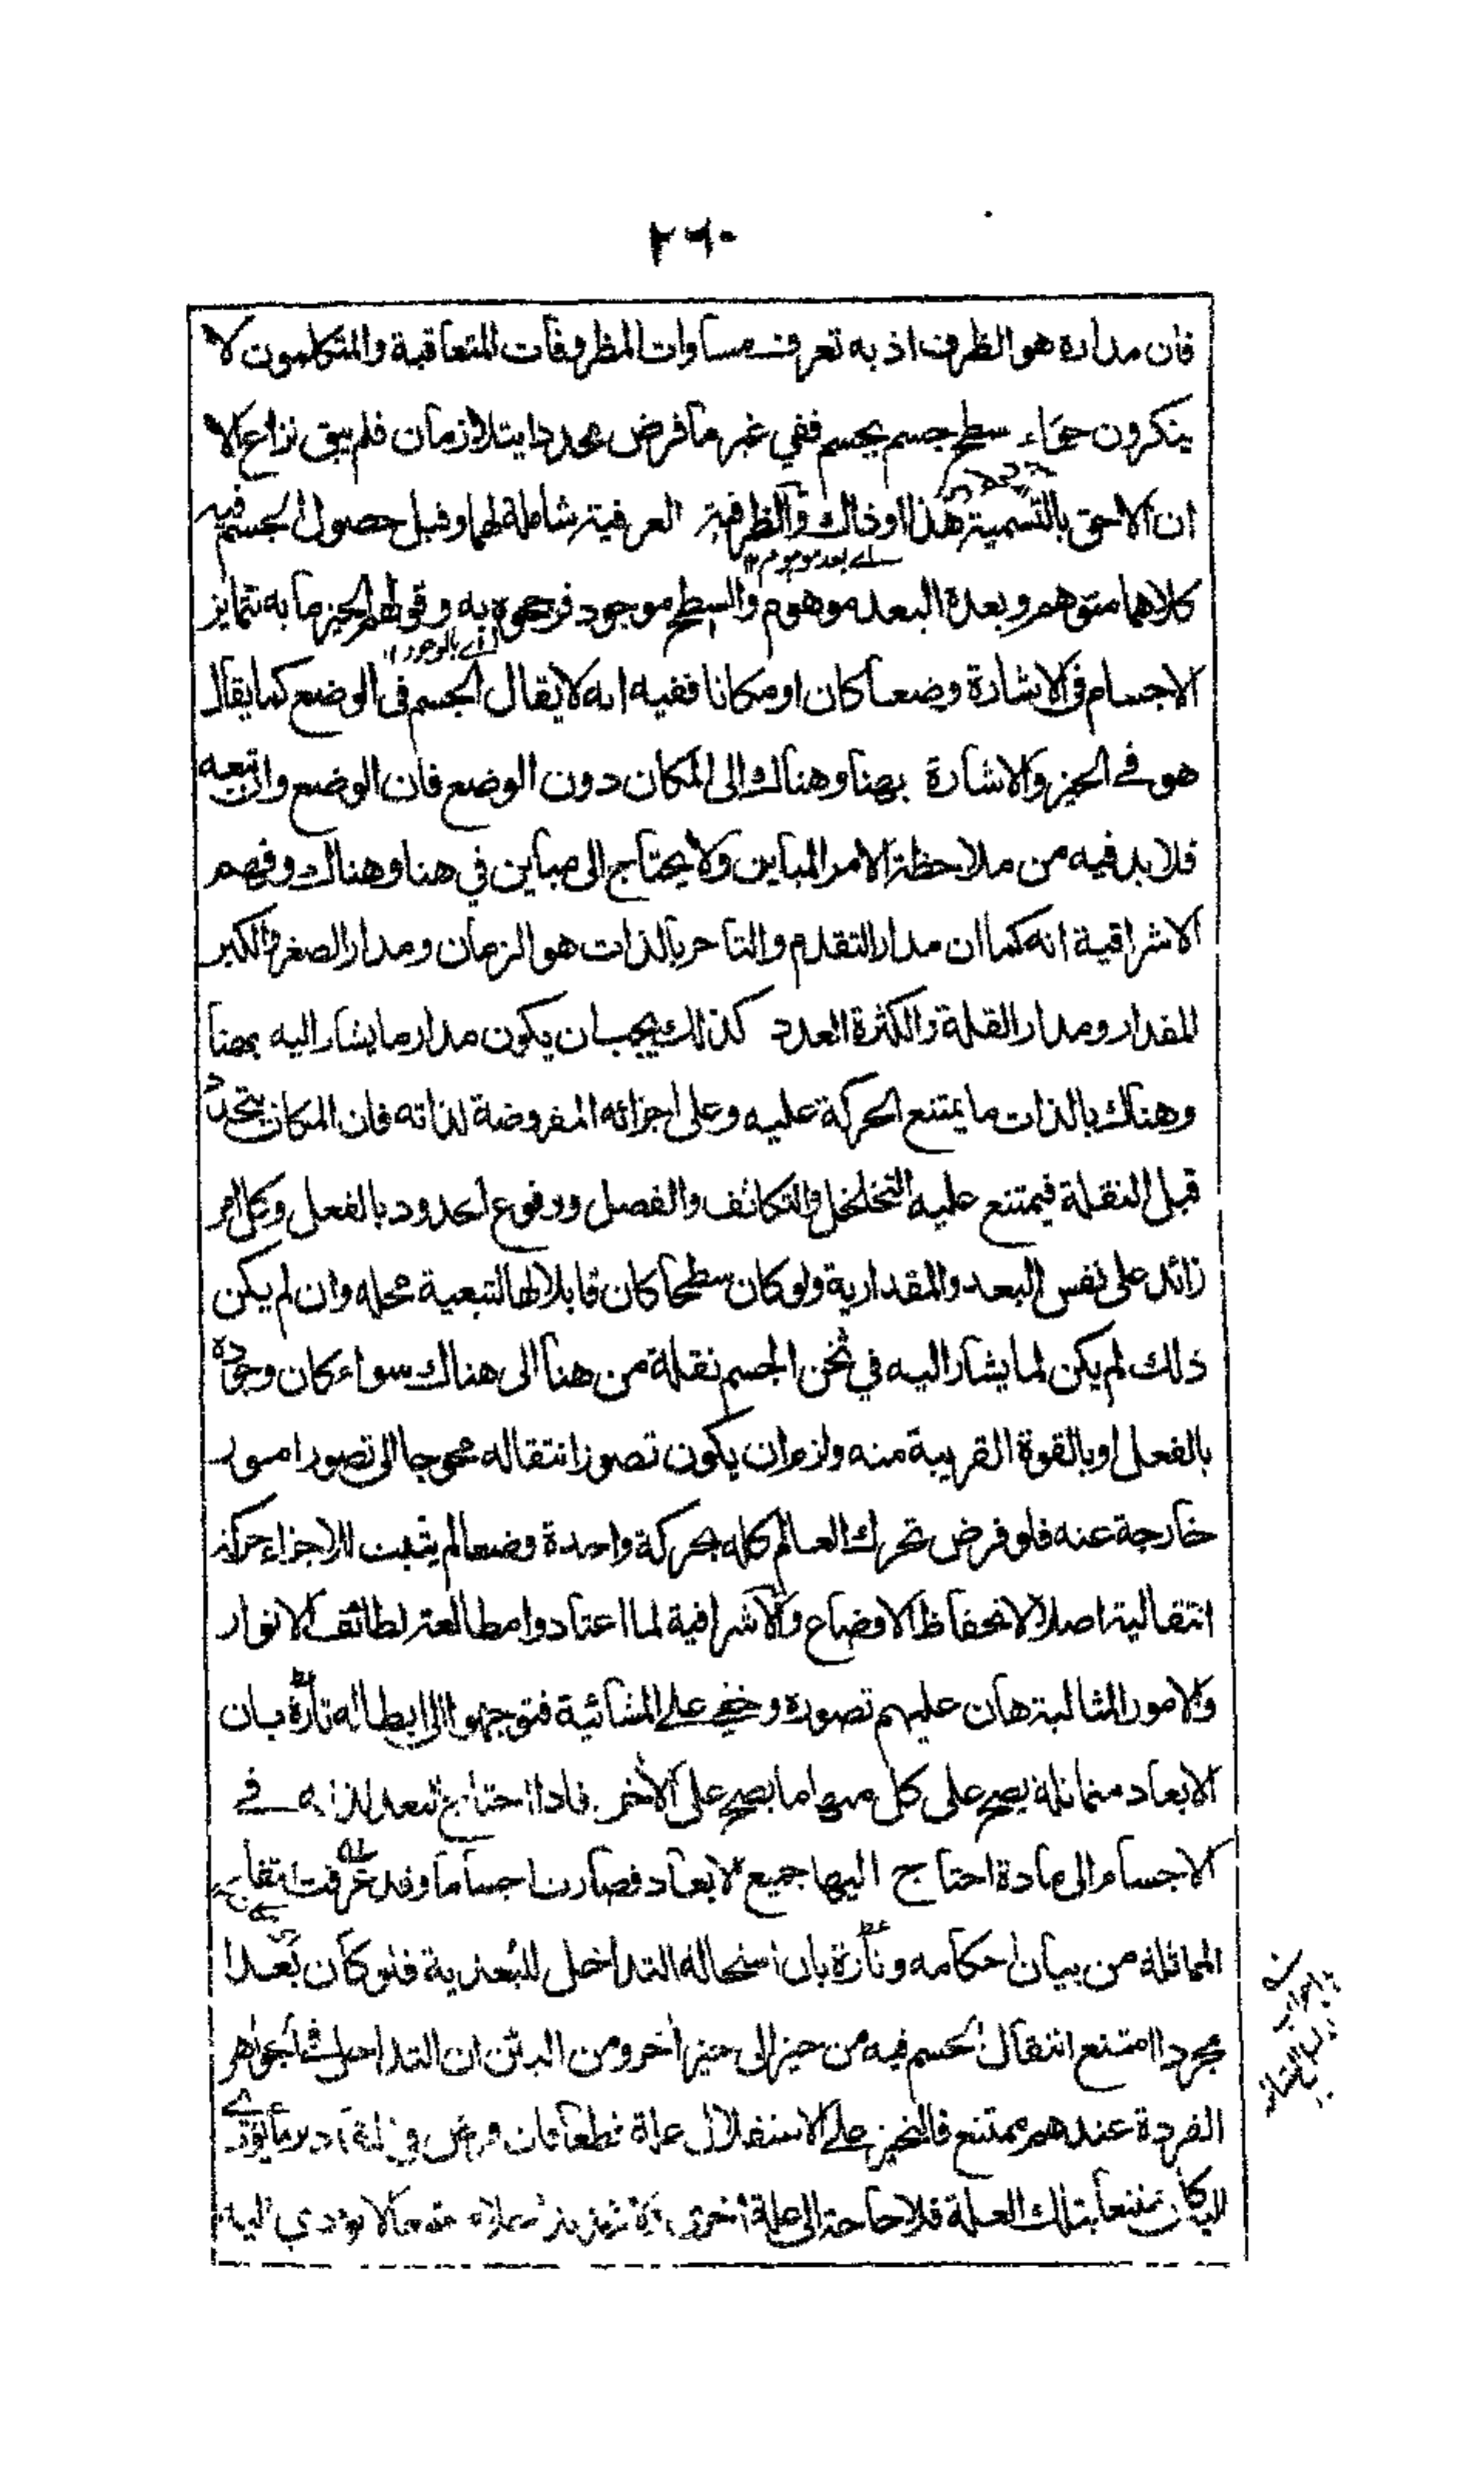 ٢٦٠
فان مداره هو الظرف اذ به تعرف مساوات المظروفات المتعاقبة والمتكلمون لا
ينكرون حواء سطح جسم بجسم ففي غير ما فرض محددا يتلازمان فلم يبق نزاع الا
ان الاحق بالتسمية هذا او ذاك والظرفية العرفية شاملة لهما وقبل حصول الجسم فيه
اے بعد موهوم
كلاهما متوهم وبعده البعد موهوم والسطح موجود فرجحوه به وقولهم الحيز ما به تتمايز
اے بالوجود
الاجسام فى الاشارة وضعا كان او مكانا ففيه انه لا يقال الجسم فى الوضع كما يقال
هو فے الحيز والاشارة بهنا وهناك الى المكان دون الوضع فان الوضع وان تبعه
فلا بد فيه من ملاحظة الامر المباين ولا يحتاج الى مباين في هنا وهناك وفهم
الاشراقية انه كما ان مدار التقدم والتاخر بالذات هو الزمان ومدار الصغر والكبر
المقدار ومدار القلة والكثرة العدد كذلك يجب ان يكون مدار ما يشار اليه بهنا
وهناك بالذات ما يمتنع الحركة عليه وعلى اجزائه المفروضة لذاته فان المكان يتحدد
قبل النقلة فيمتنع عليه التخلخل والتكاثف والفصل ووقوع الحدود بالفعل وكل امر
زائد على نفس البعد والمقدارية ولو كان سطحا كان قابلا لها لتبعية محله وان لم يكن
ذلك لم يكن لما يشار اليه في ثخن الجسم نقلة من هنا الى هناك سواء كان وجوده
بالفعل او بالقوة القريبة منه ولزم ان يكون تصور انتقاله محوجا الى تصور امور
خارجة عنه فلو فرض تحرك العالم كله بحركة واحدة وضعا لم يثبت للاجزاء حركة
انتقالية اصلا لانحفاظ الاوضاع والاشراقية لما اعتادوا مطالعة لطائف الانوار
والامور المثالية هان عليهم تصوره وخفے علے المشائية فتوجهوا الى ابطاله تارة بان
الابعاد متماثلة يصح على كل منها ما يصح على الآخر فاذا احتاج البعد لذاته فے
الاجسام الى مادة احتاج اليها جميع الابعاد فصارت اجساما وقد عرفت
المماثلة من بيان احكامه وتارة بان استحالة التداخل للبعدية فلو كان بعدا
مجردا امتنع انتقال الجسم فيه من حيز الى حيز آخر ومن البين ان التداخل فے الجواهر
الفردة عندهم ممتنع فالتحيز على الاستقلال علة قطعا فان فرض
كان ممتنعا بتلك العلة فلا حاجة الى علة اخرى